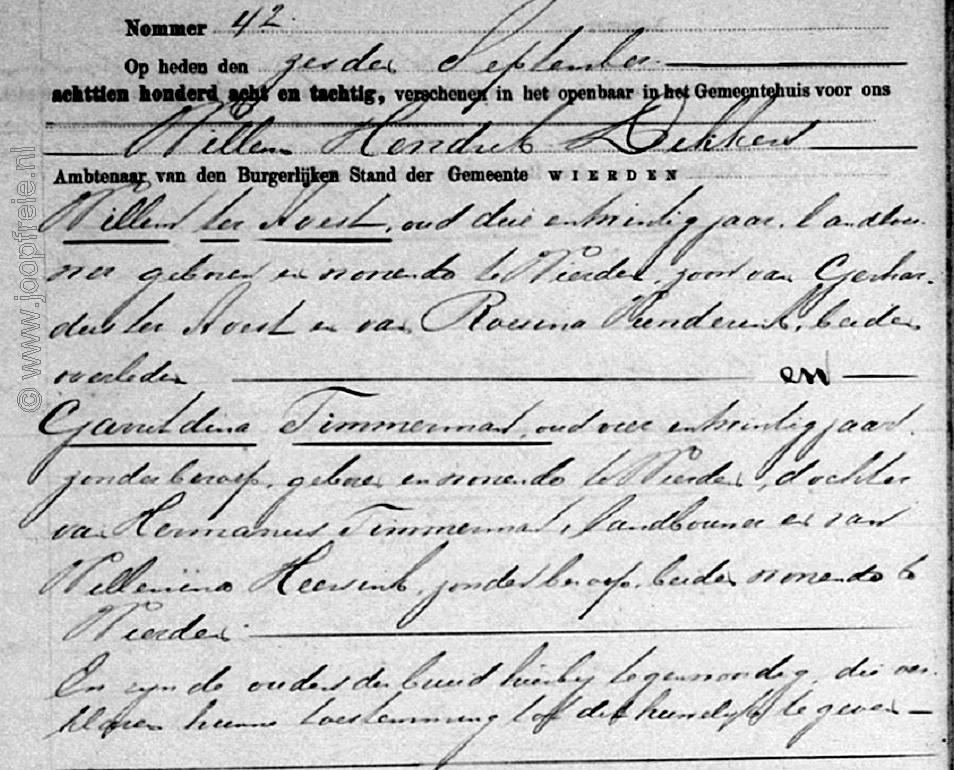 Nommer 42.
Op heden den zesden September
achttien honderd acht en tachtig, verschenen in het openbaar in het Gemeentehuis voor ons
Willem Hendrik Dekkers
Ambtenaar van den Burgerlijken Stand der Gemeente WIERDEN
Willem ter Avest, oud drie en twintig jaar, landbou-
wer geboren en wonende te Wierden, zoon van Gerhar-
dus ter Avest en van Roesina beiden
overleden en
Gerritdina Timmerman, oud vier en twintig jaar
zonder beroep, geboren en wonende te Wierden, dochter
van Hermannus Timmerman, landbouwer en van
Willemina Heersink, zonder beroep, beiden wonende te
Wierden
En zijn de ouders der bruid hierbij tegenwoordig, die ver-
klaren hunne toestemming tot dit huwelijk te geven
© www.joopfreie.nl